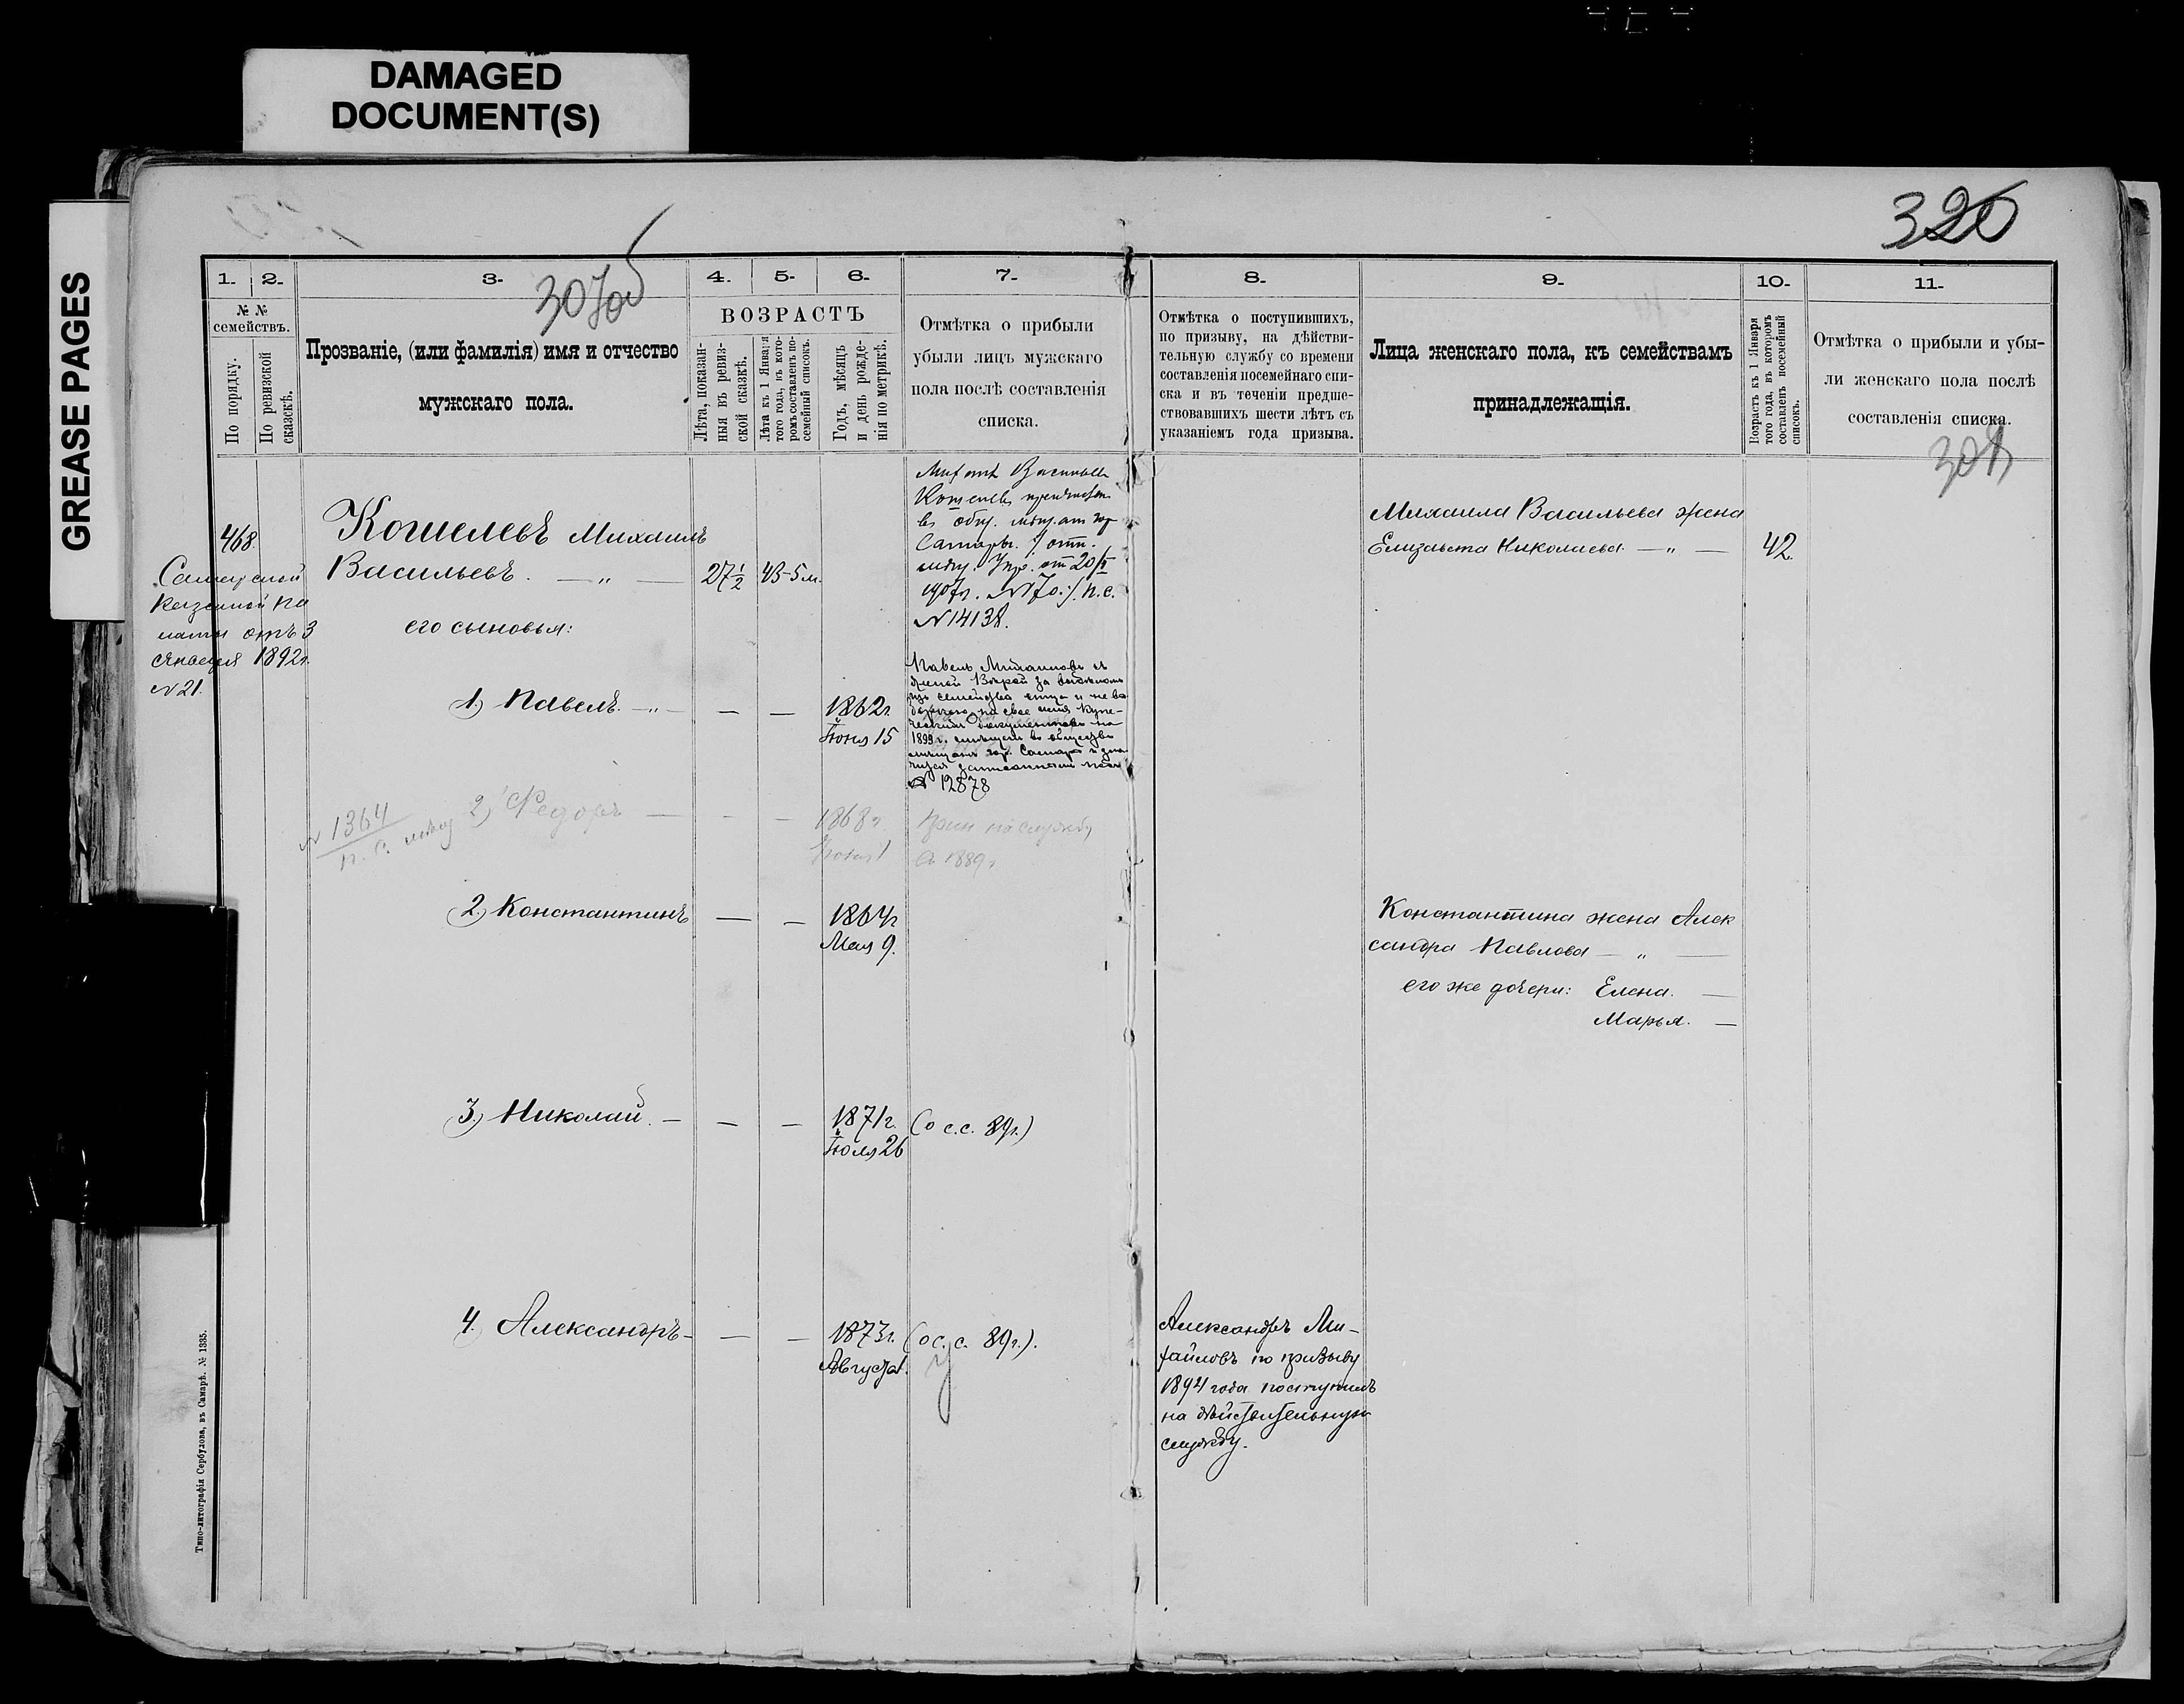 DAMAGED
DOCUMENT(S)
GREASE PAGES
320
307об
308
1. 2. 3. 4. 5. 6. 7. 8. 9. 10. 11.
№ №
семействъ.
По порядку.
По ревизской
сказкѣ.
Прозваніе, (или фамилія) имя и отчество
мужскаго пола.
ВОЗРАСТЪ
Лѣта, показан-
ныя въ ревиз-
ской сказкѣ.
Лѣта къ 1 Января
того года, въ кото-
ромъ составленъ по-
семейный списокъ.
Годъ, мѣсяцъ
и день рожде-
нія по метрикѣ.
Отмѣтка о прибыли
убыли лицъ мужскаго
пола послѣ составленія
списка.
Отмѣтка о поступившихъ,
по призыву, на дѣйстви-
тельную службу со времени
составленія посемейнаго спи-
ска и въ теченіи предше-
ствовавшихъ шести лѣтъ съ
указаніемъ года призыва.
Лица женскаго пола, къ семействамъ
принадлежащія.
Возрастъ къ 1 Января
того года, въ которомъ
составленъ посемейный
списокъ.
Отмѣтка о прибыли и убы-
ли женскаго пола послѣ
составленія списка.
468.
Самарской
Казенной Па
латы отъ 3
Января 1892г.
№ 21.
Кошелевъ Михаилъ
Васильевъ. — „ — 27½ 43-5м.
его сыновья:
Васильев
Кошелев
в общ. мещ. гор
Самары.
Упр. от 20/II
1907г. № 70 :/. п.с.
№ 14138.
Михаила Васильева жена
Елизавета Николаева — „ — 42.
1) Павелъ. — „ — — — 1862г.
Іюня 15
Павелъ Михаиловъ съ
женой Вѣрой за
изъ семейства отца и не
на свое имя купе-
ческихъ документовъ на
1899 г. въ общество
мѣщанъ гор. Самары и
№ 12878
№ 1364
п. с. мѣщ
2) Федоръ — — — 1868г.
Іюня 1
на службу
въ 1889г
2.) Константинъ — — 1864г
Мая 9.
Константина жена Алек
сандра Павлова — „ —
его же дочери: Елена. —
Марья. —
3.) Николай. — — — 1871г. (о с.с. 89г.)
Іюля 26
4. Александръ — — — 1873г. (о с. с. 89г.).
Августа 1.
Александръ Ми-
хайловъ по призыву
1894 года поступилъ
на дѣйствительную
службу.
Типо-литографія Сербулова, въ Самарѣ. № 1335.